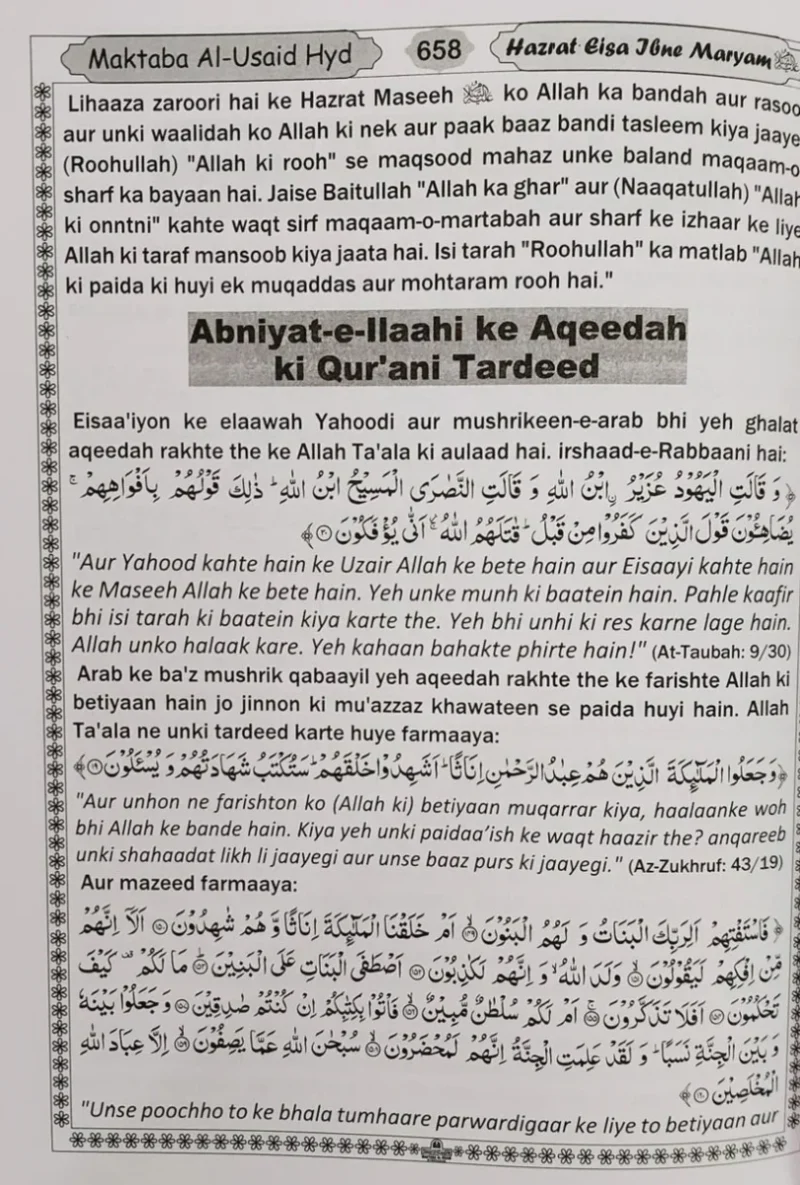 Maktaba Al-Usaid Hyd
658
Hazrat Eisa Ibne Maryam
Lihaaza zaroori hai ke Hazrat Maseeh ko Allah ka bandah aur rasoo
aur unki waalidah ko Allah ki nek aur paak baaz bandi tasleem kiya jaaye
(Roohullah) "Allah ki rooh" se maqsood mahaz unke baland maqaam-o
sharf ka bayaan hai. Jaise Baitullah "Allah ka ghar" aur (Naaqatullah) "Allah
ki onntni" kahte waqt sirf maqaam-o-martabah aur sharf ke izhaar ke liye
Allah ki taraf mansoob kiya jaata hai. Isi tarah "Roohullah" ka matlab "Allah
ki paida ki huyi ek muqaddas aur mohtaram rooh hai."
Abniyat-e-Ilaahi ke Aqeedah
ki Qur'ani Tardeed
Eisaa'iyon ke elaawah Yahoodi aur mushrikeen-e-arab bhi yeh ghalat
aqeedah rakhte the ke Allah Ta'ala ki aulaad hai. irshaad-e-Rabbaani hai:
﴿ وَ قَالَتِ الْيَهُوْدُ عُزَيْرُ ِۨابْنُ اللّٰهِ وَ قَالَتِ النَّصٰرَى الْمَسِيْحُ ابْنُ اللّٰهِ ؕ ذٰلِكَ قَوْلُهُمْ بِاَفْوَاهِهِمْ ۚ
يُضَاهِـُٔوْنَ قَوْلَ الَّذِيْنَ كَفَرُوْا مِنْ قَبْلُ ؕ قٰتَلَهُمُ اللّٰهُ ۚ اَنّٰى يُؤْفَكُوْنَ ۝۳۰ ﴾
"Aur Yahood kahte hain ke Uzair Allah ke bete hain aur Eisaayi kahte hain
ke Maseeh Allah ke bete hain. Yeh unke munh ki baatein hain. Pahle kaafir
bhi isi tarah ki baatein kiya karte the. Yeh bhi unhi ki res karne lage hain.
Allah unko halaak kare. Yeh kahaan bahakte phirte hain!" (At-Taubah: 9/30)
Arab ke ba'z mushrik qabaayil yeh aqeedah rakhte the ke farishte Allah ki
betiyaan hain jo jinnon ki mu'azzaz khawateen se paida huyi hain. Allah
Ta'ala ne unki tardeed karte huye farmaaya:
﴿ وَ جَعَلُوا الْمَلٰٓىِٕكَةَ الَّذِيْنَ هُمْ عِبٰدُ الرَّحْمٰنِ اِنَاثًا ؕ اَشَهِدُوْا خَلْقَهُمْ ؕ سَتُكْتَبُ شَهَادَتُهُمْ وَ يُسْـَٔلُوْنَ ۝۱۹ ﴾
"Aur unhon ne farishton ko (Allah ki) betiyaan muqarrar kiya, haalaanke woh
bhi Allah ke bande hain. Kiya yeh unki paidaa'ish ke waqt haazir the? anqareeb
unki shahaadat likh li jaayegi aur unse baaz purs ki jaayegi." (Az-Zukhruf: 43/19)
Aur mazeed farmaaya:
﴿ فَاسْتَفْتِهِمْ اَلِرَبِّكَ الْبَنَاتُ وَ لَهُمُ الْبَنُوْنَ ۝۱۴۹ اَمْ خَلَقْنَا الْمَلٰٓىِٕكَةَ اِنَاثًا وَّ هُمْ شٰهِدُوْنَ ۝۱۵۰ اَلَاۤ اِنَّهُمْ
مِّنْ اِفْكِهِمْ لَيَقُوْلُوْنَ ۝۱۵۱ وَلَدَ اللّٰهُ ۙ وَ اِنَّهُمْ لَكٰذِبُوْنَ ۝۱۵۲ اَصْطَفَى الْبَنَاتِ عَلَى الْبَنِيْنَ ۝۱۵۳ مَا لَكُمْ ۫ كَيْفَ
تَحْكُمُوْنَ ۝۱۵۴ اَفَلَا تَذَكَّرُوْنَ ۝۱۵۵ اَمْ لَكُمْ سُلْطٰنٌ مُّبِيْنٌ ۝۱۵۶ فَاْتُوْا بِكِتٰبِكُمْ اِنْ كُنْتُمْ صٰدِقِيْنَ ۝۱۵۷ وَ جَعَلُوْا بَيْنَهٗ
وَ بَيْنَ الْجِنَّةِ نَسَبًا ؕ وَ لَقَدْ عَلِمَتِ الْجِنَّةُ اِنَّهُمْ لَمُحْضَرُوْنَ ۝۱۵۸ سُبْحٰنَ اللّٰهِ عَمَّا يَصِفُوْنَ ۝۱۵۹ اِلَّا عِبَادَ اللّٰهِ
الْمُخْلَصِيْنَ ۝۱۶۰ ﴾
"Unse poochho to ke bhala tumhaare parwardigaar ke liye to betiyaan aur